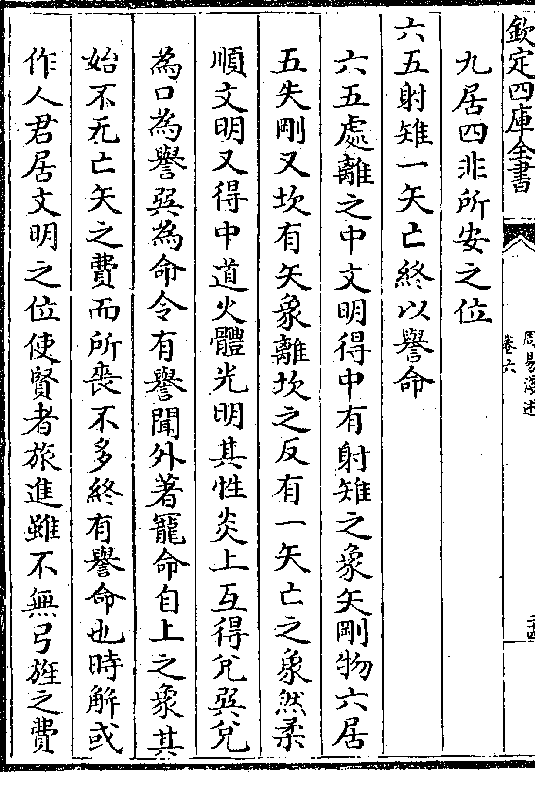 欽定四庫全書
周易淺述
卷六
九居四非所安之位
六五射雉一矢亡終以譽命
六五處離之中文明得中有射雉之象矢剛物六居
五失剛又坎有矢象離坎之反有一矢亡之象然柔
順文明又得中道火體光明其性炎上互得兌巽兌
為口為譽巽為命令有譽聞外著寵命自上之象其
始不无亡矢之費而所喪不多終有譽命也時解或
作人君居文明之位使賢者旅進雖不無弓旌之費